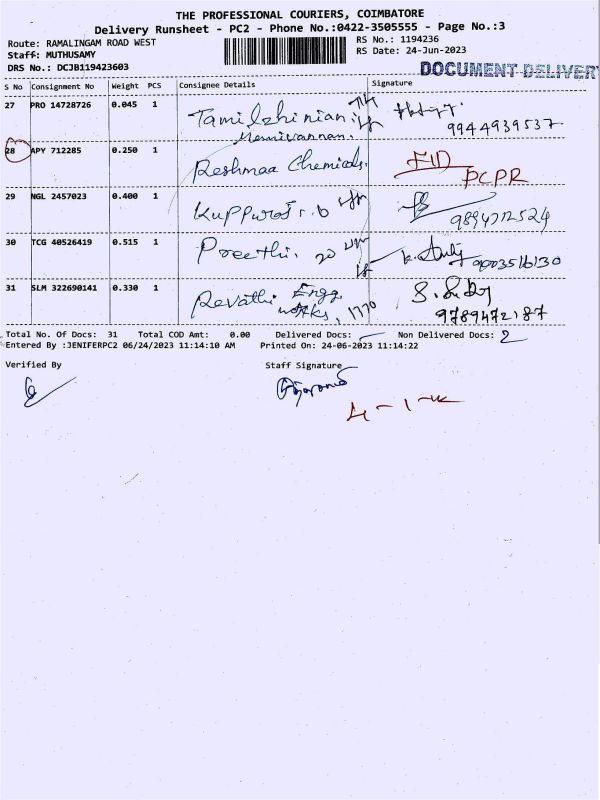 THE PROFESSIONAL COURIERS, COIMBATORE
Delivery Runsheet - PC2 - Phone No.:0422-3505555 - Page No.:3
Route: RAMALINGAM ROAD WEST RS No.: 1194236
Staff: MUTHUSAMY RS Date: 24-Jun-2023
DRS No.: DCJB119423603 DOCUMENT DELIVER
S No Consignment No Weight PCS Consignee Details Signature
27 PRO 14728726 0.045 1 9944939537
28 APY 712285 0.250 1 Reshmaa Chemicals. FID
PCPR
29 NGL 2457023 0.400 1 Kuppuraj r.b
30 TCG 40526419 0.515 1 Preethi. 9003516130
31 SLM 322690141 0.330 1 Revathi Engg
works, 1770 9789472187
Total No. Of Docs: 31 Total COD Amt: 0.00 Delivered Docs: Non Delivered Docs: 2
Entered By :JENIFERPC2 06/24/2023 11:14:10 AM Printed On: 24-06-2023 11:14:22
Verified By Staff Signature